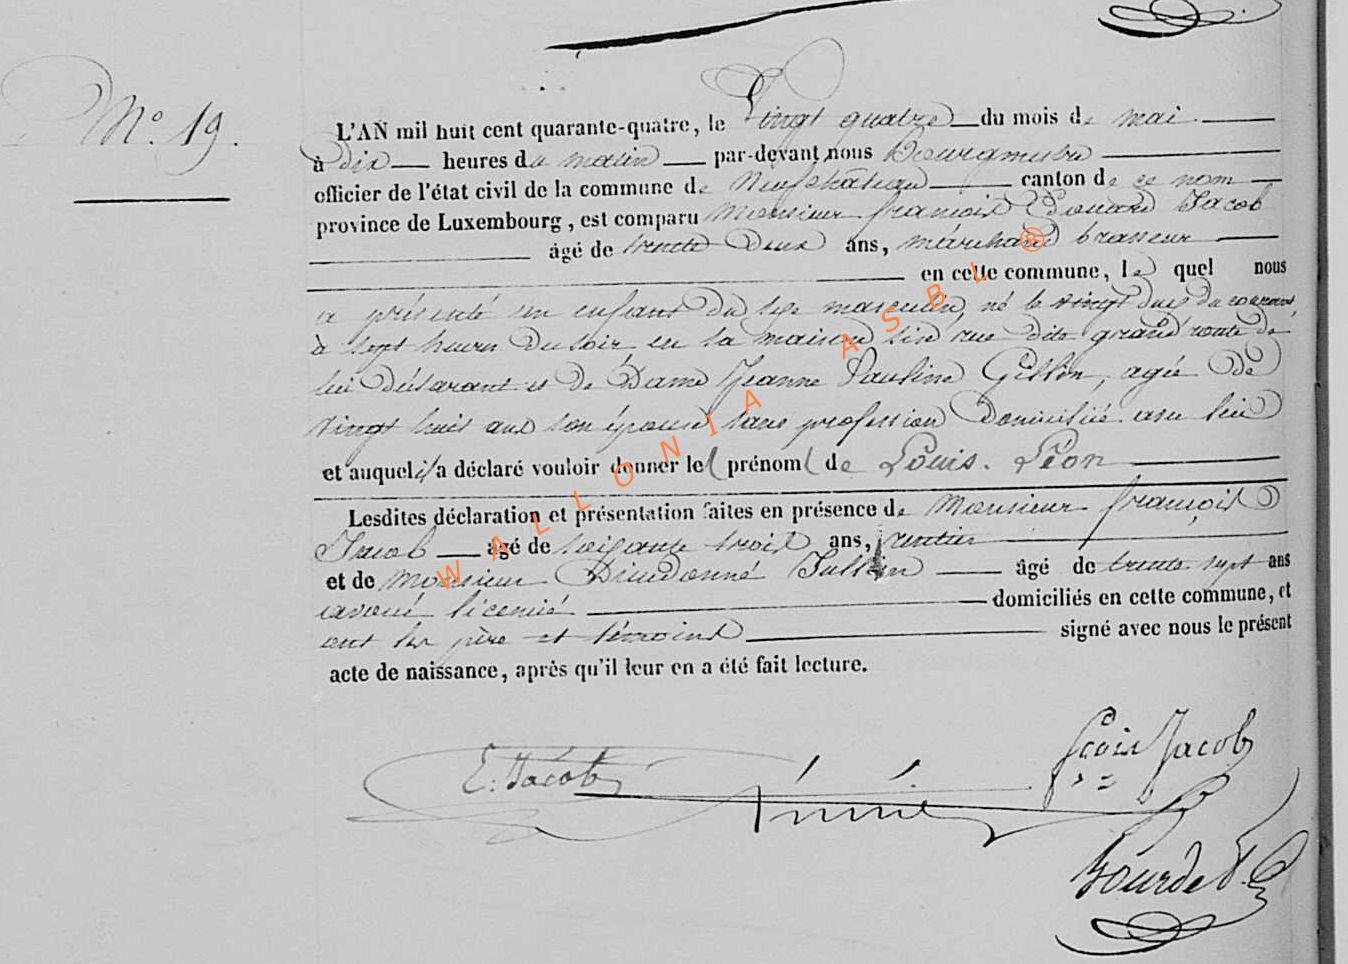 N.° 19.
L'AN mil huit cent quarante-quatre, le Vingt quatre du mois de mai
à dix heures du matin par-devant nous Bourgmestre
officier de l'état civil de la commune de Neufchâteau canton de ce nom
province de Luxembourg, est comparu Monsieur françois Edouard Jacob
âgé de trente deux ans, marchand brasseur
en cette commune, le quel nous
a présenté un enfant du sexe masculin, né le vingt deux du courant,
à sept heures du soir en sa maison sise rue dite grand'route de
lui déclarant et de Dame Jeanne Pauline Gillon, agée de
vingt huit ans son épouse sans profession domiciliée au lieu
et auquel il a déclaré vouloir donner les prénoms de Louis. Léon
Lesdites déclaration et présentation faites en présence de Monsieur françois
Jacob âgé de soixante trois ans, rentier
et de Monsieur Dieudonné âgé de trente sept ans
avoué licencié domiciliés en cette commune, et
ont les père et témoins signé avec nous le présent
acte de naissance, après qu'il leur en a été fait lecture.
E. Jacob
fçois Jacob
Bourde
WALLONIA ASBL ®